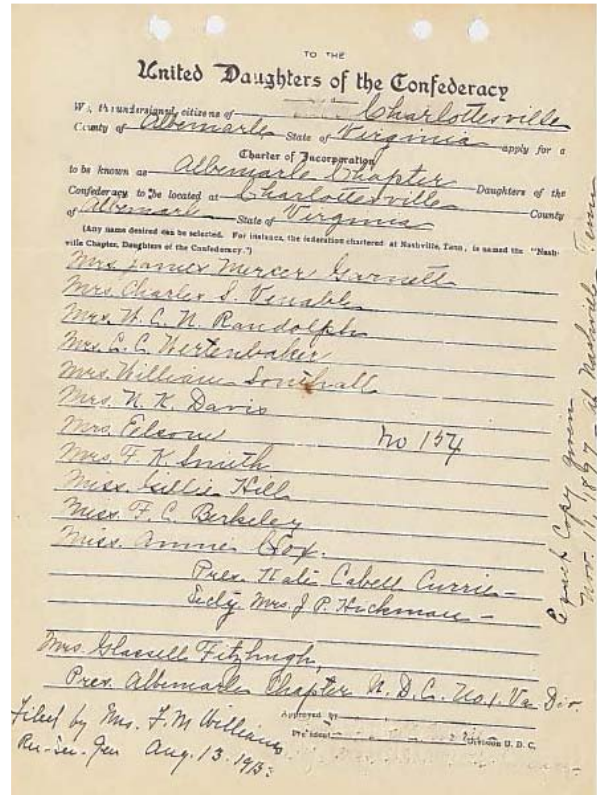 TO THE
United Daughters of the Confederacy
We, the undersigned, citizens of Charlottesville
County of Albemarle State of Virginia apply for a
Charter of Incorporation
to be known as Albemarle Chapter Daughters of the
Confederacy to be located at Charlottesville County
of Albemarle State of Virginia
(Any name desired can be selected. For instance, the federation chartered at Nashville, Tenn., is named the "Nash-
ville Chapter, Daughters of the Confederacy.")
Mrs James Mercer Garnett
Mrs. Charles S. Venable
Mrs. W. C. N. Randolph
Mrs. C. C. Wertenbaker
Mrs. William Southall
Mrs. N. K. Davis
Mrs.
No 154
Mrs. F. K. Smith
Miss. Lillie Hill
Miss. F. C. Berkeley
Miss. Annie Cox.
Pres. Katie Cabell Currie -
Secty. Mrs. J. P. Hickman -
Mrs. Glassell Fitzhugh,
Pres. Albemarle Chapter U. D. C. No. 1. Va Div.
Approved by
President Division U. D. C.
Filed by Mrs. F. M Williams
Aug. 13. 1913.
Exact Copy given
Nov. 11, 1897 - at Nashville - Tenn